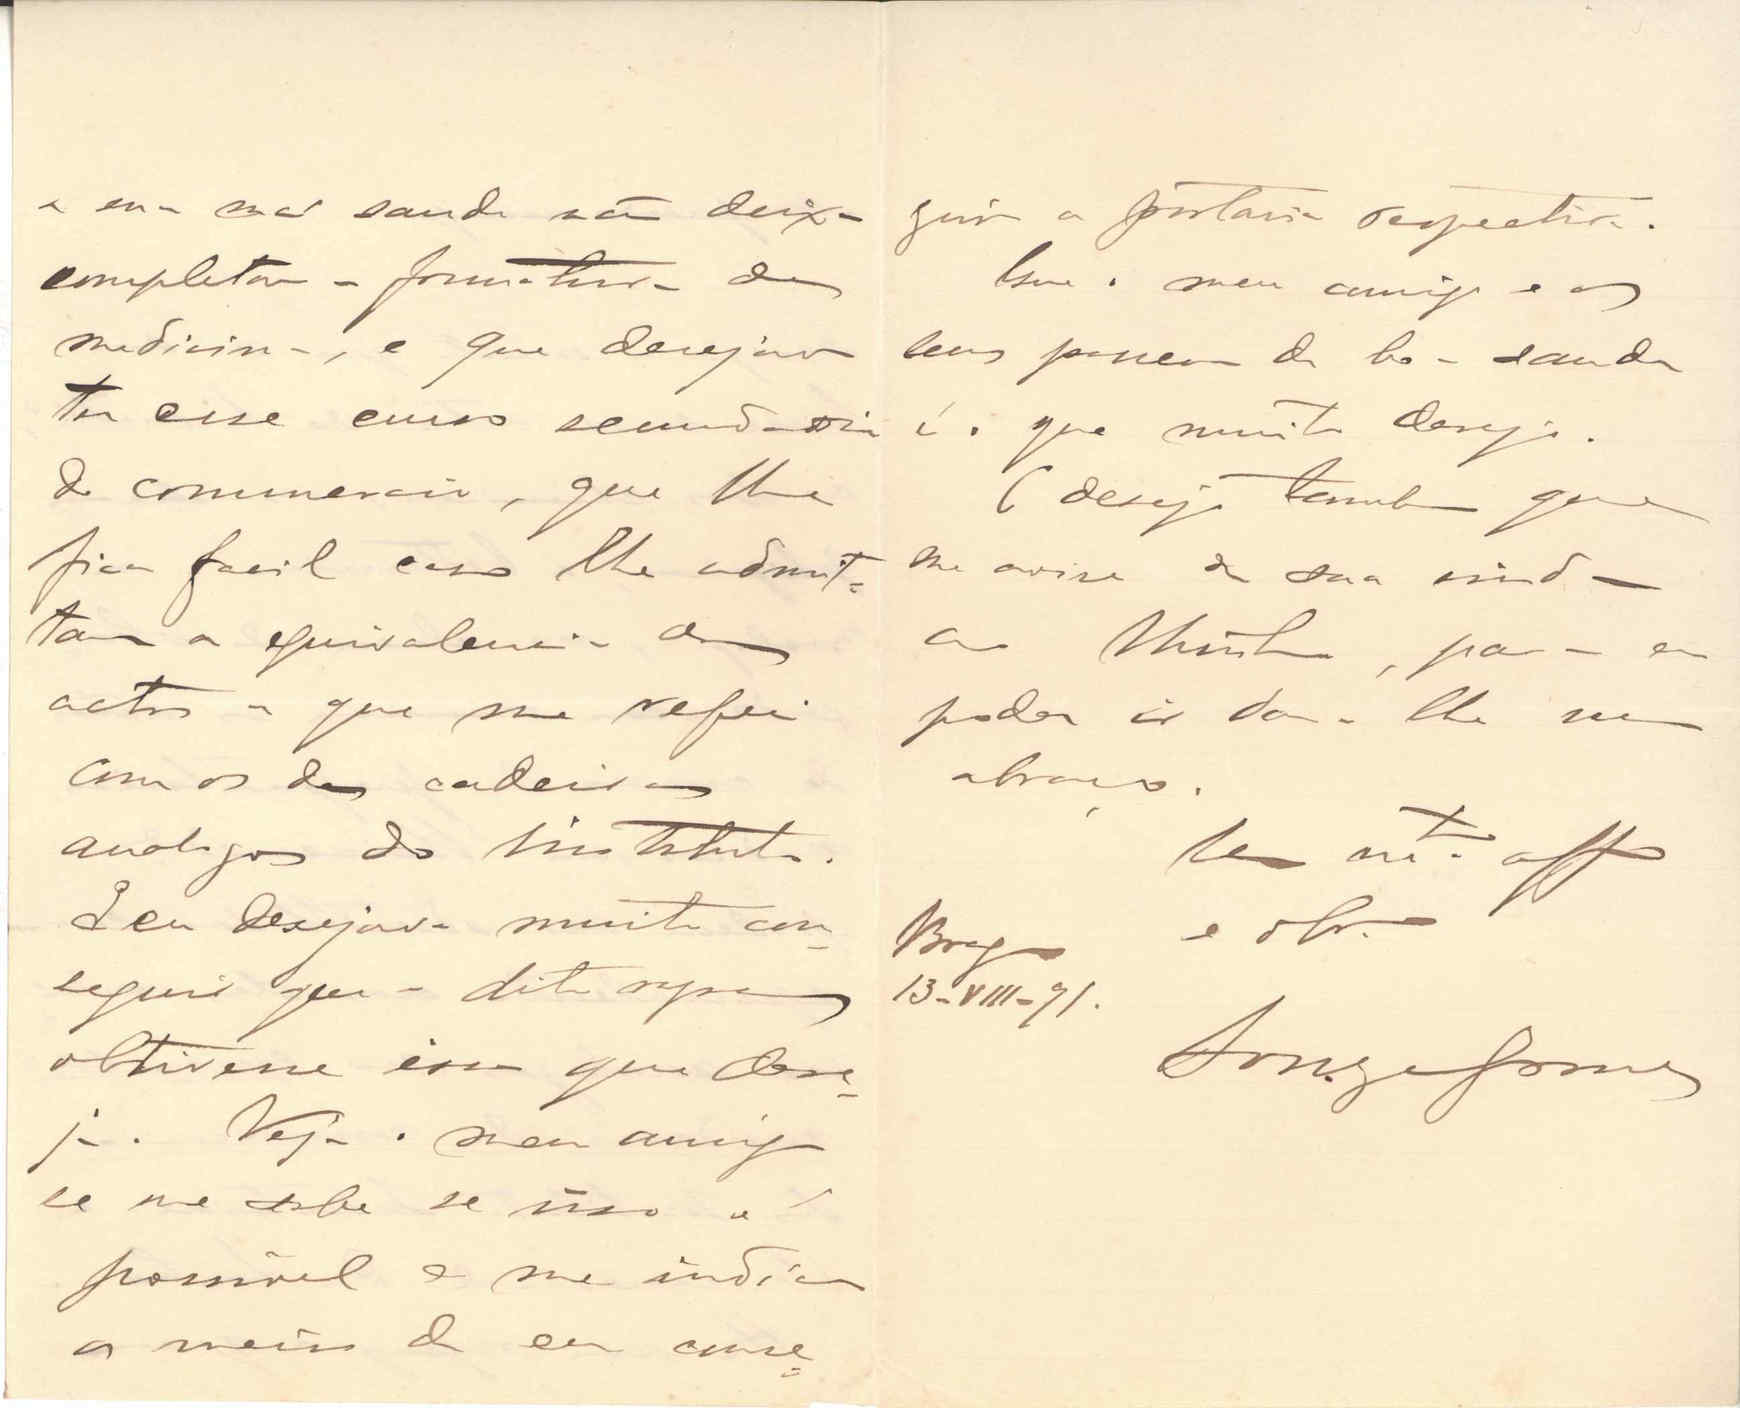 a cuja má saude não deixa
completar a formatura de
medicina, e que desejava
ter esse curso secundario
do commercio, que lhe
fica facil caso lhe admit-
tam a equivalencia dos
actos a que me referi
com os das cadeiras
analogas do Instituto.
E eu desejava muito con-
seguir que a dita
obtivesse isso que dese-
ja. Veja o meu amigo
se me sabe se isso é
possivel e me indica
os meios de eu conse-
guir a portaria respectiva.
Que o meu amigo e os
seus passem de boa saude
é o que muito desejo.
E desejo tambem que
me avise da sua vinda
ao Minho, para eu
poder ir dar-lhe um
abraço.
Seu mto affo
e obro
Braga
13-VIII-91.
Souza Gomes